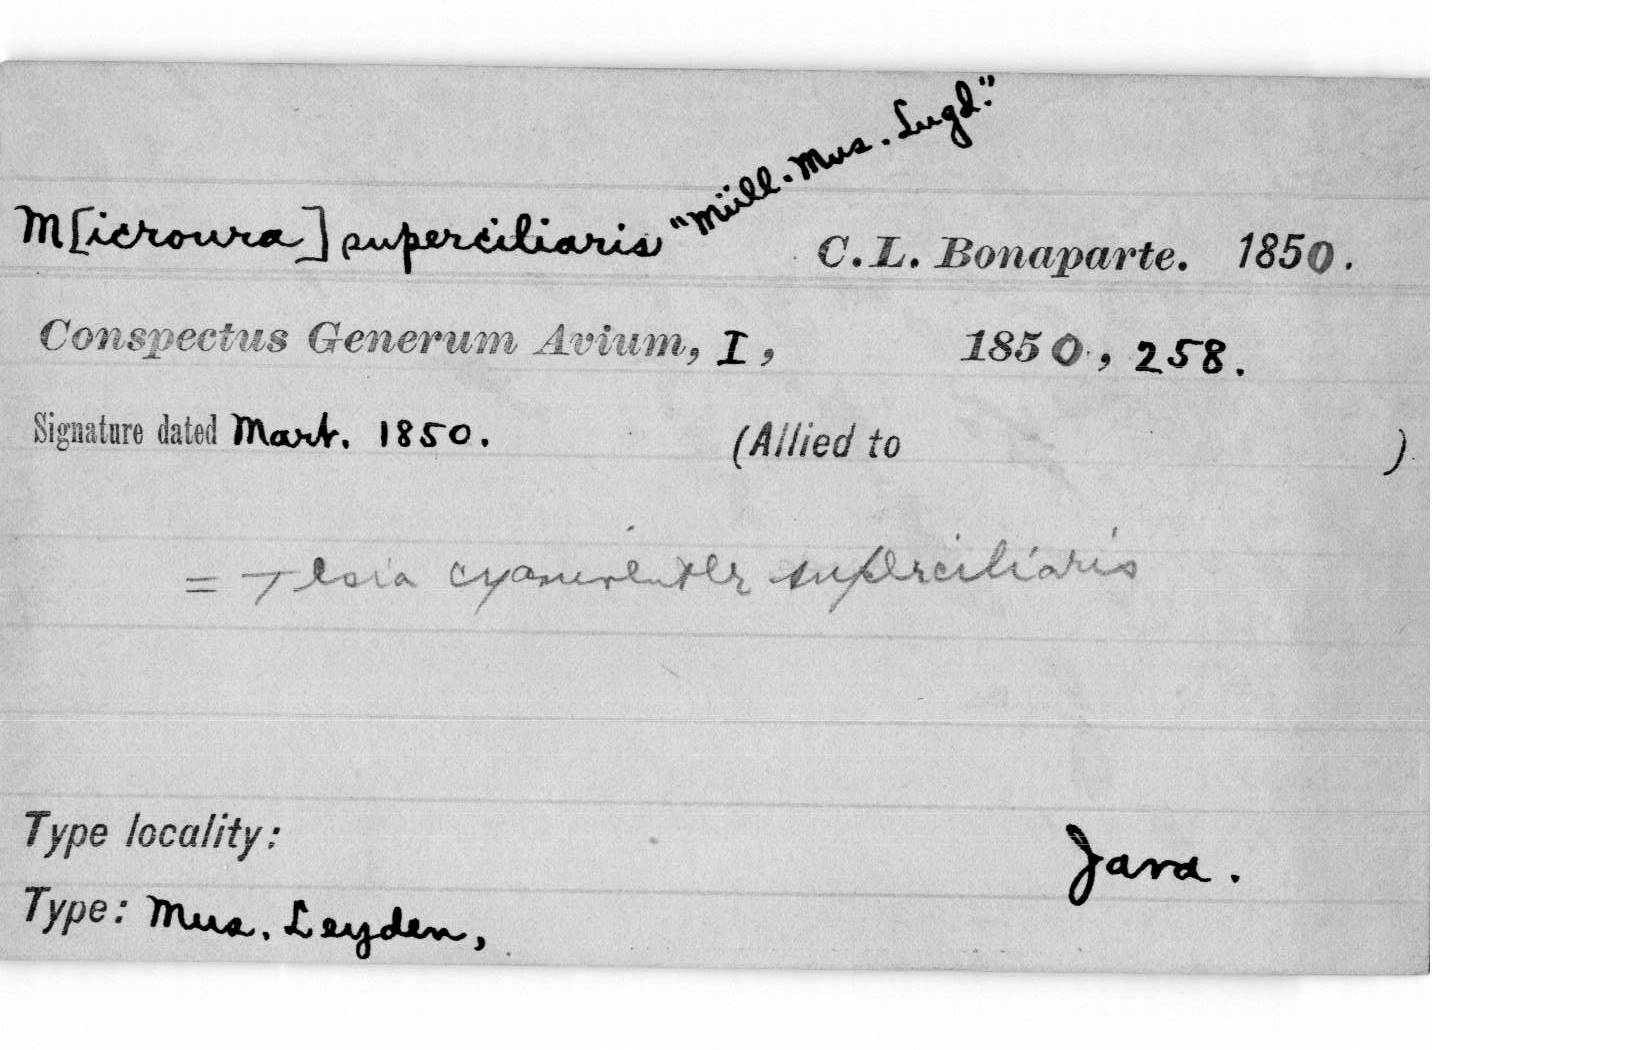 M[icroura] superciliaris "Müll. Mus. Lugd." C. L. Bonaparte. 1850.
Conspectus Generum Avium, I, 1850, 258.
Signature dated Mart. 1850. (Allied to )
= Tesia cyaniventer superciliaris
Type locality: Java.
Type: Mus. Leyden,